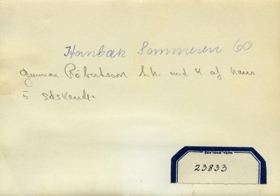 Hanbæk Sommeren 60
Gunnar Robertson h.h. med 4 af hans
5 søskende.
23833